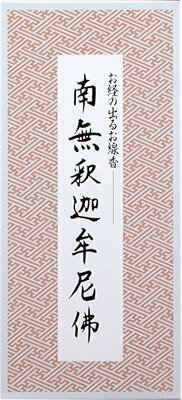 お経の出るお線香
南無釈迦牟尼佛